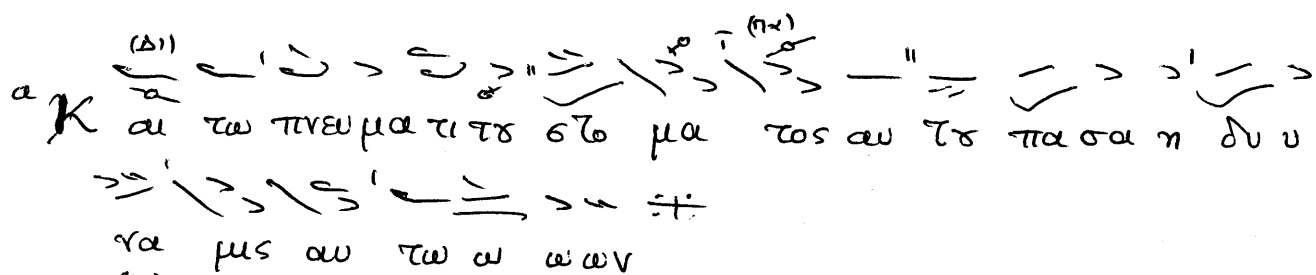 (Δι) (πα)
α Και τω πνευματι τȣ στο μα τος αυ τȣ πα σα η δυ υ
να μις αυ τω ω ω ων